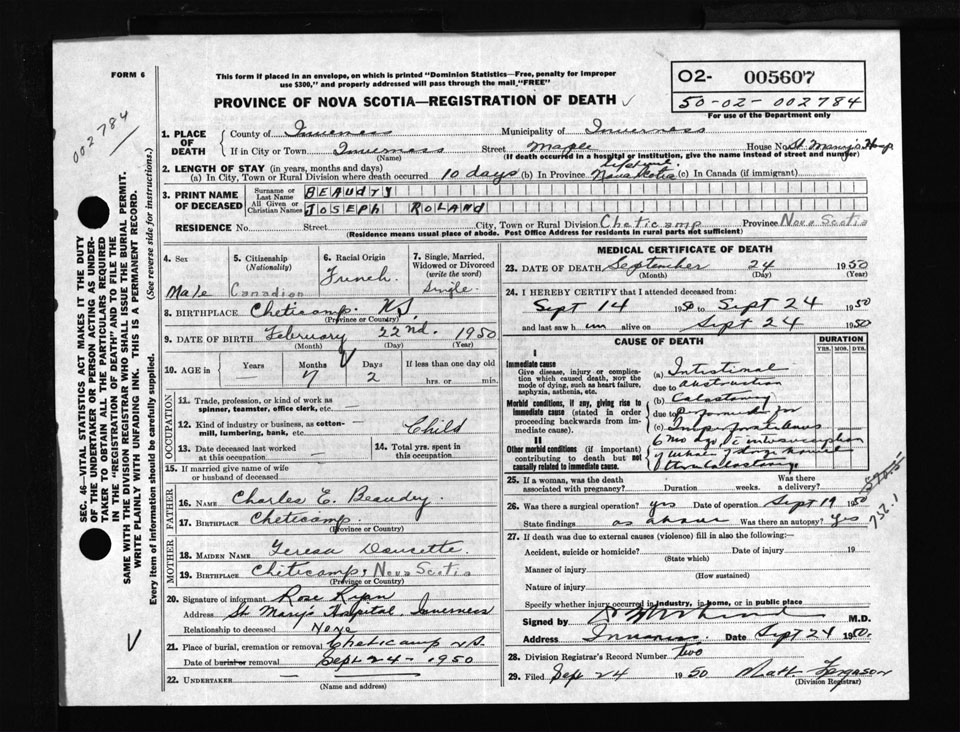 FORM 6
This form if placed in an envelope, on which is printed "Dominion Statistics—Free, penalty for improper
use $300," and properly addressed will pass through the mail "FREE"
O2- 005607
50-02-002784
For use of the Department only
PROVINCE OF NOVA SCOTIA—REGISTRATION OF DEATH
002784
1. PLACE OF DEATH
County of Inverness Municipality of Inverness
If in City or Town Inverness Street Maple House No. St. Mary's Hosp
(Name) (If death occurred in a hospital or institution, give the name instead of street and number)
2. LENGTH OF STAY (in years, months and days)
(a) In City, Town or Rural Division where death occurred 10 days (b) In Province Nova Scotia (c) In Canada (if immigrant)
3. PRINT NAME OF DECEASED
Surname or Last Name BEAUDRY
All Given or Christian Names JOSEPH ROLAND
RESIDENCE No. Street City, Town or Rural Division Cheticamp Province Nova Scotia
(Residence means usual place of abode. Post Office Address for residents in rural parts not sufficient)
4. Sex Male
5. Citizenship (Nationality) Canadian
6. Racial Origin French
7. Single, Married, Widowed or Divorced (write the word) Single
8. BIRTHPLACE Cheticamp N.S.
(Province or Country)
9. DATE OF BIRTH February 22nd. 1950
(Month) (Day) (Year)
10. AGE in Years Months 7 Days 2 If less than one day old hrs. or min.
OCCUPATION
11. Trade, profession, or kind of work as spinner, teamster, office clerk, etc. —
12. Kind of industry or business, as cotton-mill, lumbering, bank, etc. — Child
13. Date deceased last worked at this occupation —
14. Total yrs. spent in this occupation —
15. If married give name of wife or husband of deceased —
FATHER
16. NAME Charles E. Beaudry
17. BIRTHPLACE Cheticamp.
(Province or Country)
MOTHER
18. MAIDEN NAME Teresa Doucette.
19. BIRTHPLACE Cheticamp, Nova Scotia
(Province or Country)
20. Signature of informant Rose Ryan
Address St Mary's Hospital Inverness
Relationship to deceased None
21. Place of burial, cremation or removal Cheticamp N.S.
Date of burial or removal Sept 24 - 1950
22. UNDERTAKER —
(Name and address)
MEDICAL CERTIFICATE OF DEATH
23. DATE OF DEATH September 24 1950
(Month) (Day) (Year)
24. I HEREBY CERTIFY that I attended deceased from:
Sept 14 1950 to Sept 24 1950
and last saw him alive on Sept 24 1950
CAUSE OF DEATH
DURATION
YRS. MOS. DYS.
I
Immediate cause
Give disease, injury or complication which caused death, NOT the mode of dying, such as heart failure, asphyxia, asthenia, etc.
Morbid conditions, if any, giving rise to immediate cause (stated in order proceeding backwards from immediate cause).
II
Other morbid conditions (if important) contributing to death but not causally related to immediate cause.
(a) Intestinal
due to obstruction
(b) Colostomy
due to performed for
(c) Imperforate anus
6 mo ago
25. If a woman, was the death associated with pregnancy? Duration weeks. Was there a delivery?
26. Was there a surgical operation? yes Date of operation Sept 19 1950
State findings as above Was there an autopsy? Yes
5705
752.1
27. If death was due to external causes (violence) fill in also the following:—
Accident, suicide or homicide? Date of injury 19
(State which)
Manner of injury
(How sustained)
Nature of injury
Specify whether injury occurred in industry, in home, or in public place
Signed by M.D.
Address Inverness. Date Sept 24 1950.
28. Division Registrar's Record Number two
29. Filed Sept 24 1950 Matt. Ferguson
(Division Registrar)
SEC. 46—VITAL STATISTICS ACT MAKES IT THE DUTY
OF THE UNDERTAKER OR PERSON ACTING AS UNDER-
TAKER TO OBTAIN ALL THE PARTICULARS REQUIRED
IN THE "REGISTRATION OF DEATH" AND TO FILE THE
SAME WITH THE DIVISION REGISTRAR WHO SHALL ISSUE THE BURIAL PERMIT.
WRITE PLAINLY WITH UNFADING INK. THIS IS A PERMANENT RECORD.
Every item of information should be carefully supplied. (See reverse side for instructions.)